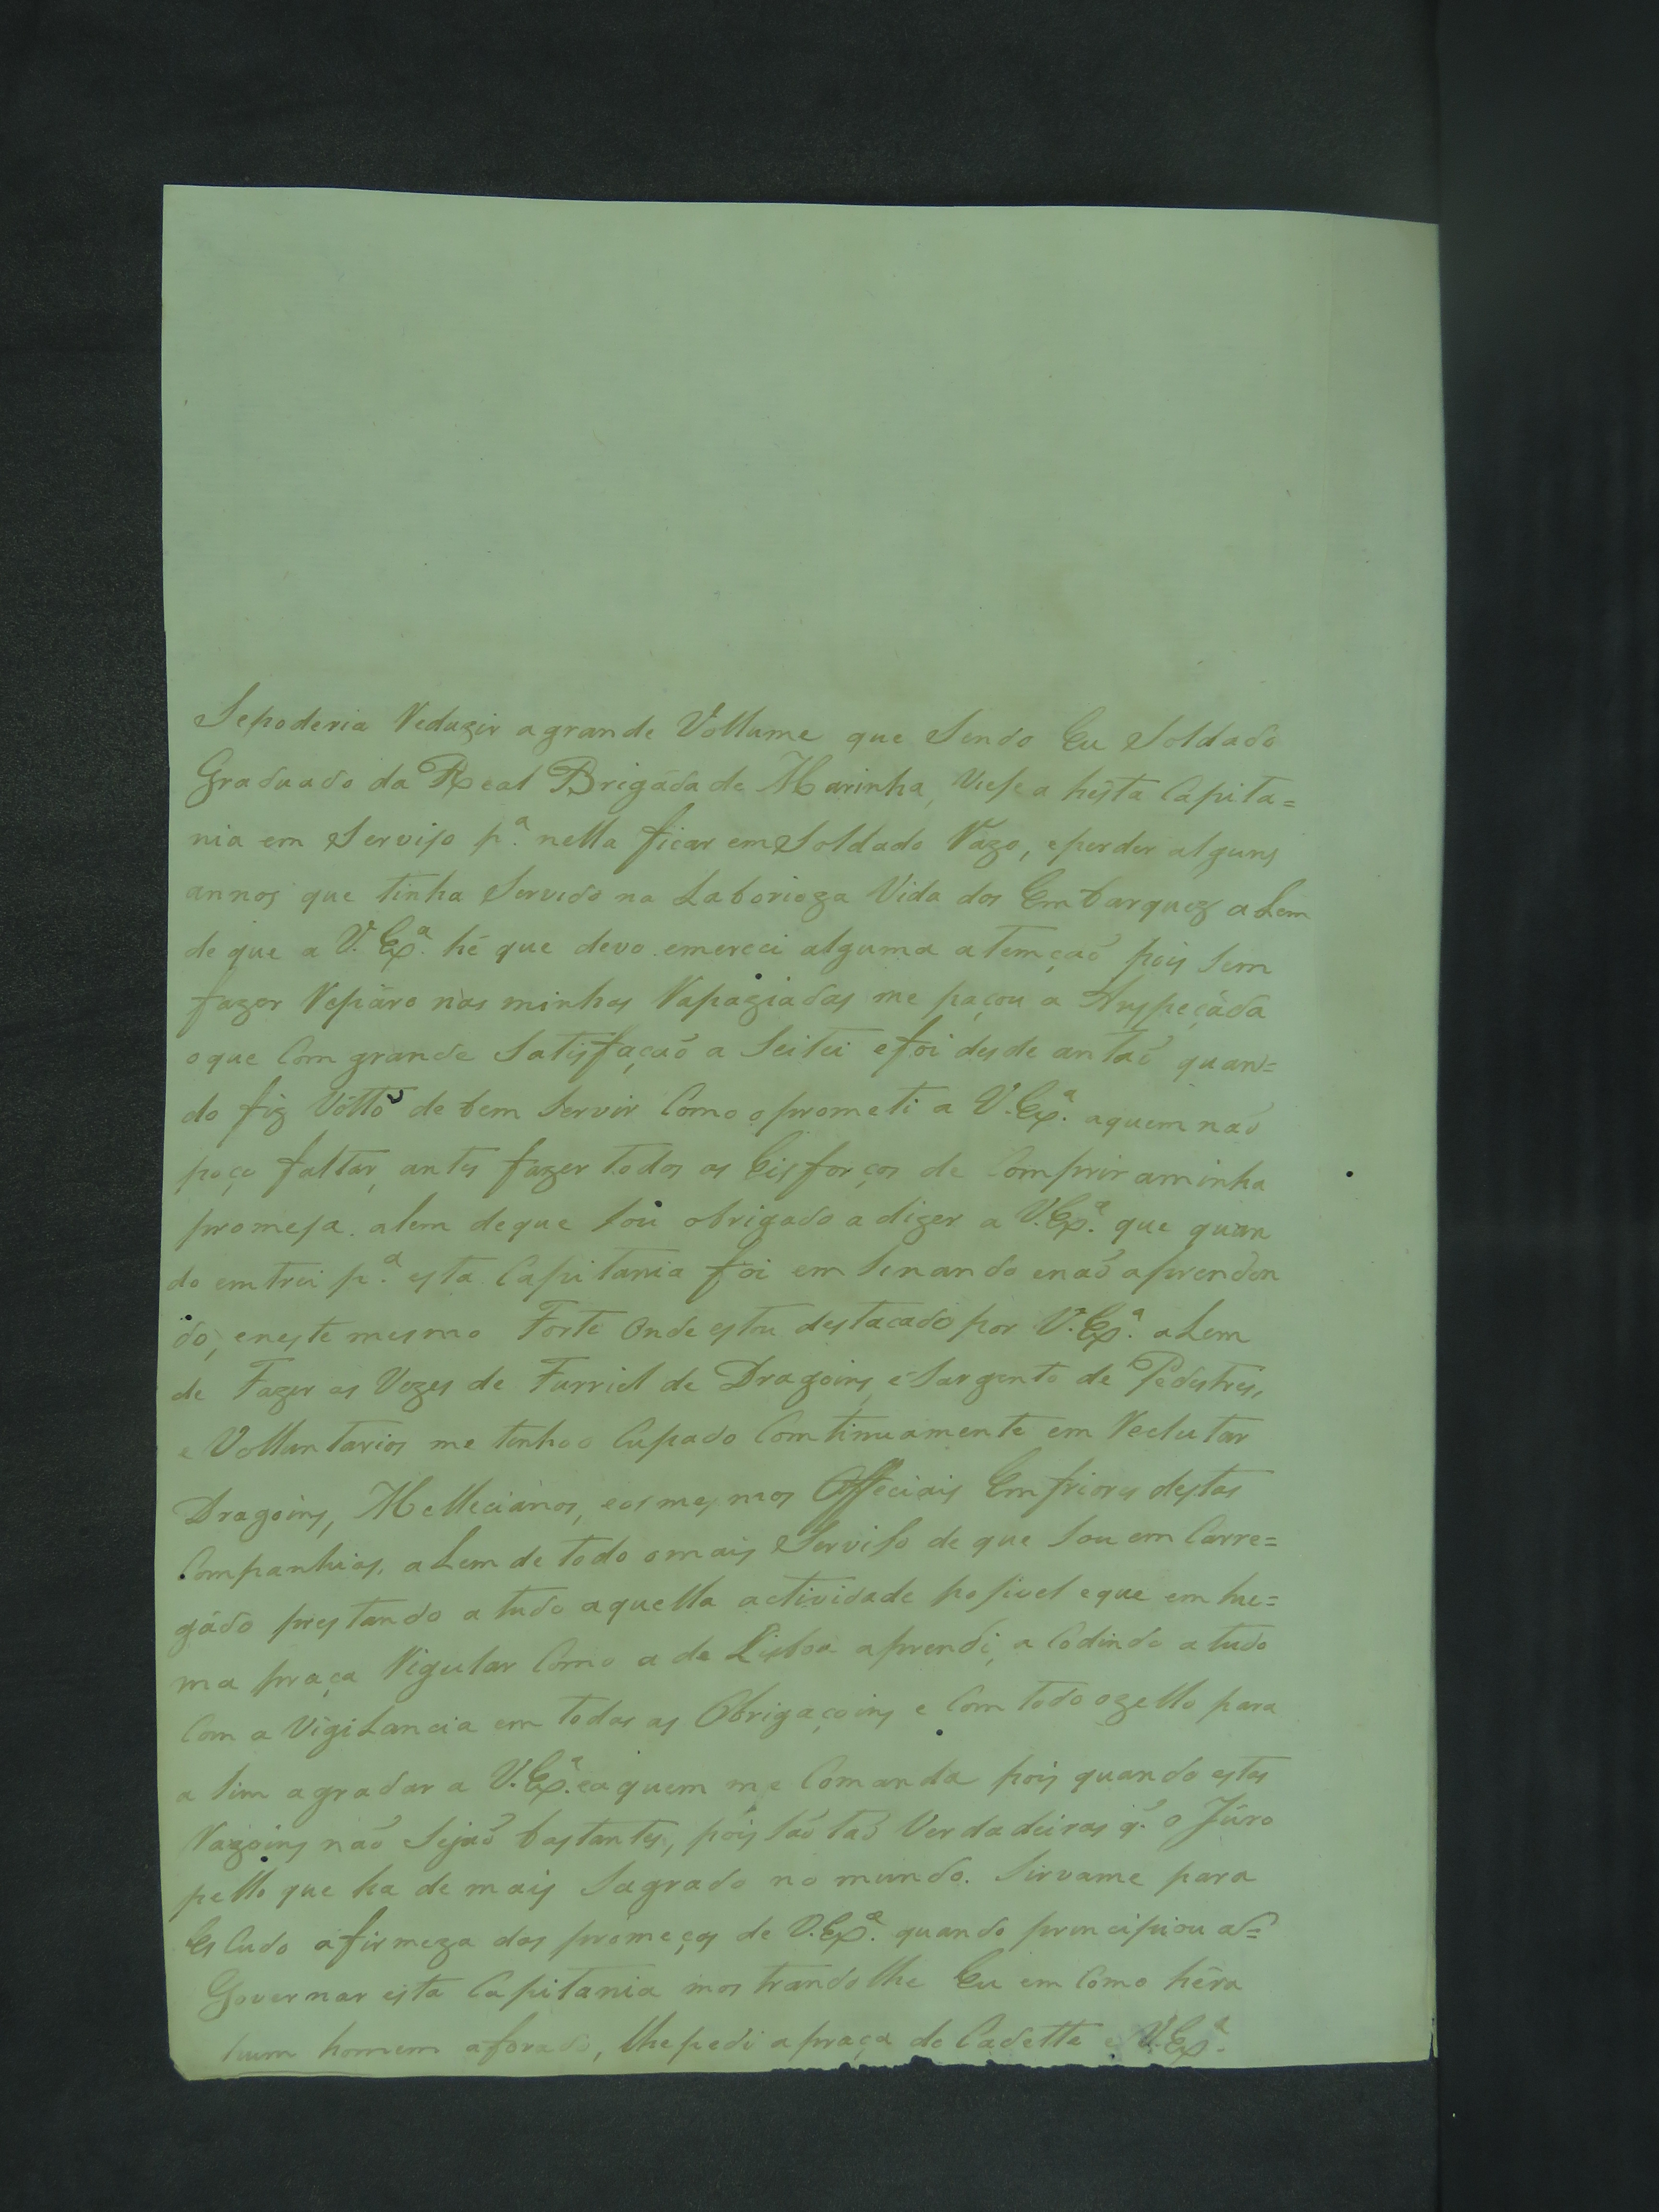 Sepoderia Reduzir agrande Vollume que Sendo Eu Soldado
Graduado da Real Brigáda de Marinha, Viese a hesta Capita=
nia em Serviso p.ª nella ficar em Soldado Razo, eperder alguns
annos que tinha Servido na Laborioza Vida dos Embarquez aLem
de que a V. Ex.ª hé que devo emereci alguma atemçaõ pois Sem
fazer Repáro nas minhas Rapaziadas me paçou a Anspeçáda
oque Com grande Satisfaçaõ a Seitei efoi desde antaõ quan=
do fiz Vótto de bem Servir Como oprometi a V. Ex.ª aquem naõ
poço faltar, antes fazer todos os Eisforços de Comprir aminha
promesa. alem deque Sou obrigado a dizer a V. Ex.ª que quan
do emtrei p.ª esta Capitania foi em Sinando enaõ aprenden
do, eneste mesmo Forte Onde estou destacado por V. Ex.ª aLem
de Fazer as Vezes de Furriel de Dragoins, e Sargento de Pedestres,
e Volluntarios me tenho o Cupado Comtinuamente em Reclutar
Dragoins, Mellecianos, eos mesmos Offeciais Emfriores destas
Companhias, aLem de todo omais Serviso de que Sou em Carre=
gádo prestando a tudo aquella actividade posivel eque em hu=
ma praça Rigular Como a de Lisboa aprendi, a Codindo a tudo
Com a VigiLancia em todas as Obrigaçoins e Com todo ozello para
a Sim agradar a V. Ex.ª ea quem me Comanda pois quando estas
Razoins naõ Sejaõ bastantes, pois Saõ taõ Verdadeiras q̃. o Júro
pello que ha de mais Sagrado no mundo. Sirvame para
Es Cudo afirmeza das promeças de V. Ex.ª quando principiou a=
Governar esta Capitania mostrandolhe Eu em Como héra
hum homem aforado, lhepedi apraça de Cadette e V. Ex.ª